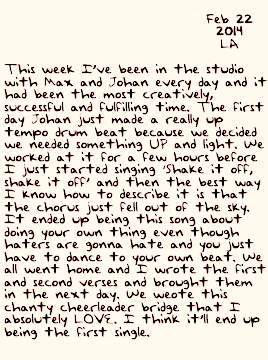 Feb 22
2014
LA
This week I've been in the studio
with Max and Johan every day and it
had been the most creatively,
successful and fulfilling time. The first
day Johan just made a really up
tempo drum beat because we decided
we needed something UP and light. We
worked at it for a few hours before
I just started singing 'Shake it off,
shake it off' and then the best way
I know how to describe it is that
the chorus just fell out of the sky.
It ended up being this song about
doing your own thing even though
haters are gonna hate and you just
have to dance to your own beat. We
all went home and I wrote the first
and second verses and brought them
in the next day. We weote this
chanty cheerleader bridge that I
absolutely LOVE. I think it'll end up
being the first single.